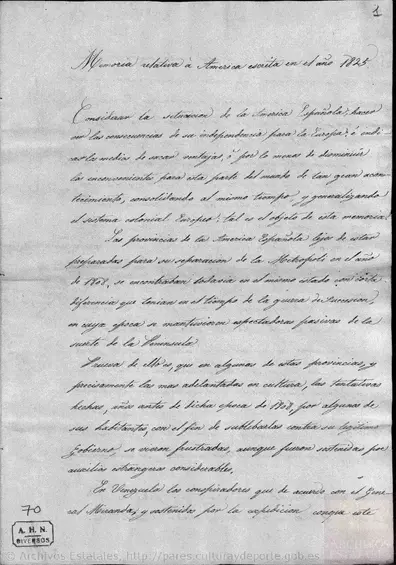 1
Memoria relativa à America escrita en el año 1825
Considerar la situacion de la America Española; hacer
ver las consecuencias de su independencia para la Europa; é indi-
car los medios de sacar ventajas, ó por lo menos de disminuir
los inconvenientes para esta parte del mundo de tan gran acon-
tecimiento, consolidando al mismo tiempo, y generalizando
el sistema colonial Europeo; tal es el objeto de esta memoria.
Las provincias de la America Española lejos de estar
preparadas para su separacion de la Metropoli en el año
de 1808, se encontraban todavia en el mismo estado con corta
diferencia que tenian en el tiempo de la guerra de Sucesion,
en cuya epoca se mantuvieron espectadoras pasivas de la
suerte de la Peninsula.
Prueba de ello es, que en algunas de estas provincias, y
precisamente las mas adelantadas en cultura, las tentativas
hechas, años antes de dicha epoca de 1808, por algunos de
sus habitantes, con el fin de sublebarlas contra su legitimo
Gobierno se vieron frustradas, aunque fueron sostenidas por
auxilios estrangeros considerables.
En Venezuela los conspiradores que de acuerdo con el Gene-
ral Miranda, y sostenidos por la expedicion conque este
70
A. H. N.
DIVERSOS
© Archivos Estatales, http://pares.culturaydeporte.gob.es